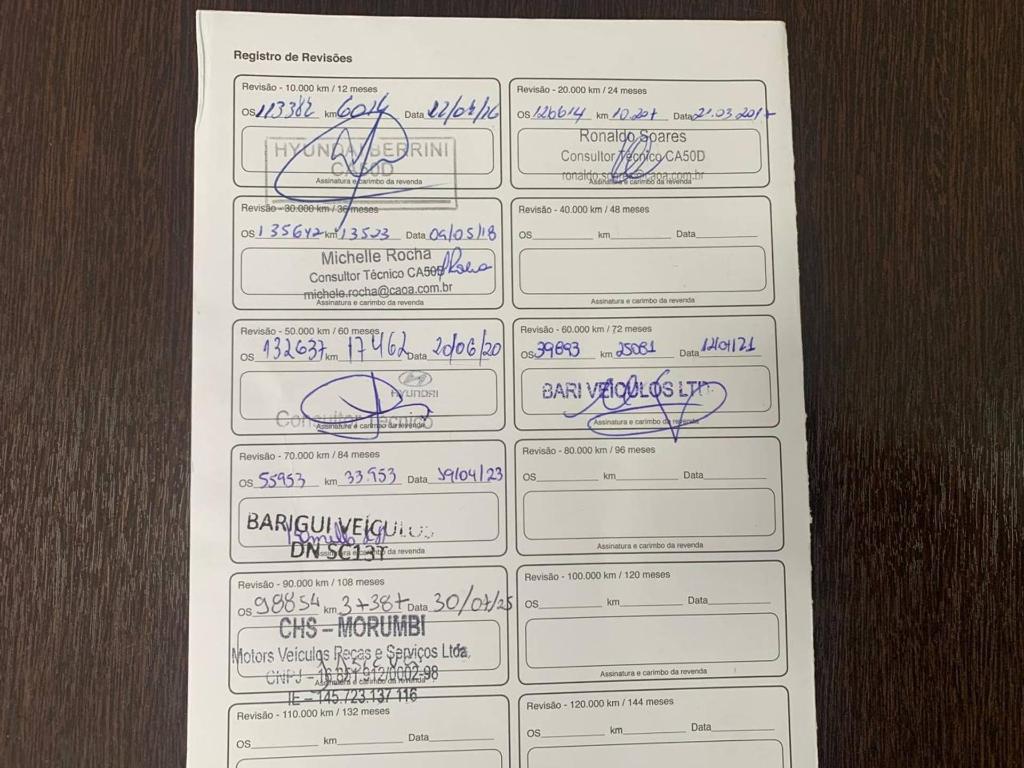 Registro de Revisões
Revisão - 10.000 km / 12 meses
OS 113382 km 6014 Data 22/04/16
HYUNDAI BERRINI
CA50D
Assinatura e carimbo da revenda
Revisão - 20.000 km / 24 meses
OS 126614 km 10.207 Data 21.03.2017
Ronaldo Soares
Consultor Técnico CA50D
ronaldo.soares@caoa.com.br
Assinatura e carimbo da revenda
Revisão - 30.000 km / 36 meses
OS 135642 km 13523 Data 09/05/18
Michelle Rocha
Consultor Técnico CA50D
michele.rocha@caoa.com.br
Assinatura e carimbo da revenda
Revisão - 40.000 km / 48 meses
OS km Data
Assinatura e carimbo da revenda
Revisão - 50.000 km / 60 meses
OS 132637 km 17462 Data 20/06/20
HYUNDAI
Consultor Técnico
Assinatura e carimbo da revenda
Revisão - 60.000 km / 72 meses
OS 39893 km 25081 Data 12/01/21
BARI VEICULOS LTD
Assinatura e carimbo da revenda
Revisão - 70.000 km / 84 meses
OS 55953 km 33.953 Data 19/04/23
BARIGUI VEÍCULOS
DN SC13T
Assinatura e carimbo da revenda
Revisão - 80.000 km / 96 meses
OS km Data
Assinatura e carimbo da revenda
Revisão - 90.000 km / 108 meses
OS 98854 km 37387 Data 30/07/25
CHS – MORUMBI
Motors Veículos Peças e Serviços Ltda.
CNPJ –
Assinatura e carimbo da revenda
IE – 145.723.137 116
Revisão - 100.000 km / 120 meses
OS km Data
Assinatura e carimbo da revenda
Revisão - 110.000 km / 132 meses
OS km Data
Revisão - 120.000 km / 144 meses
OS km Data